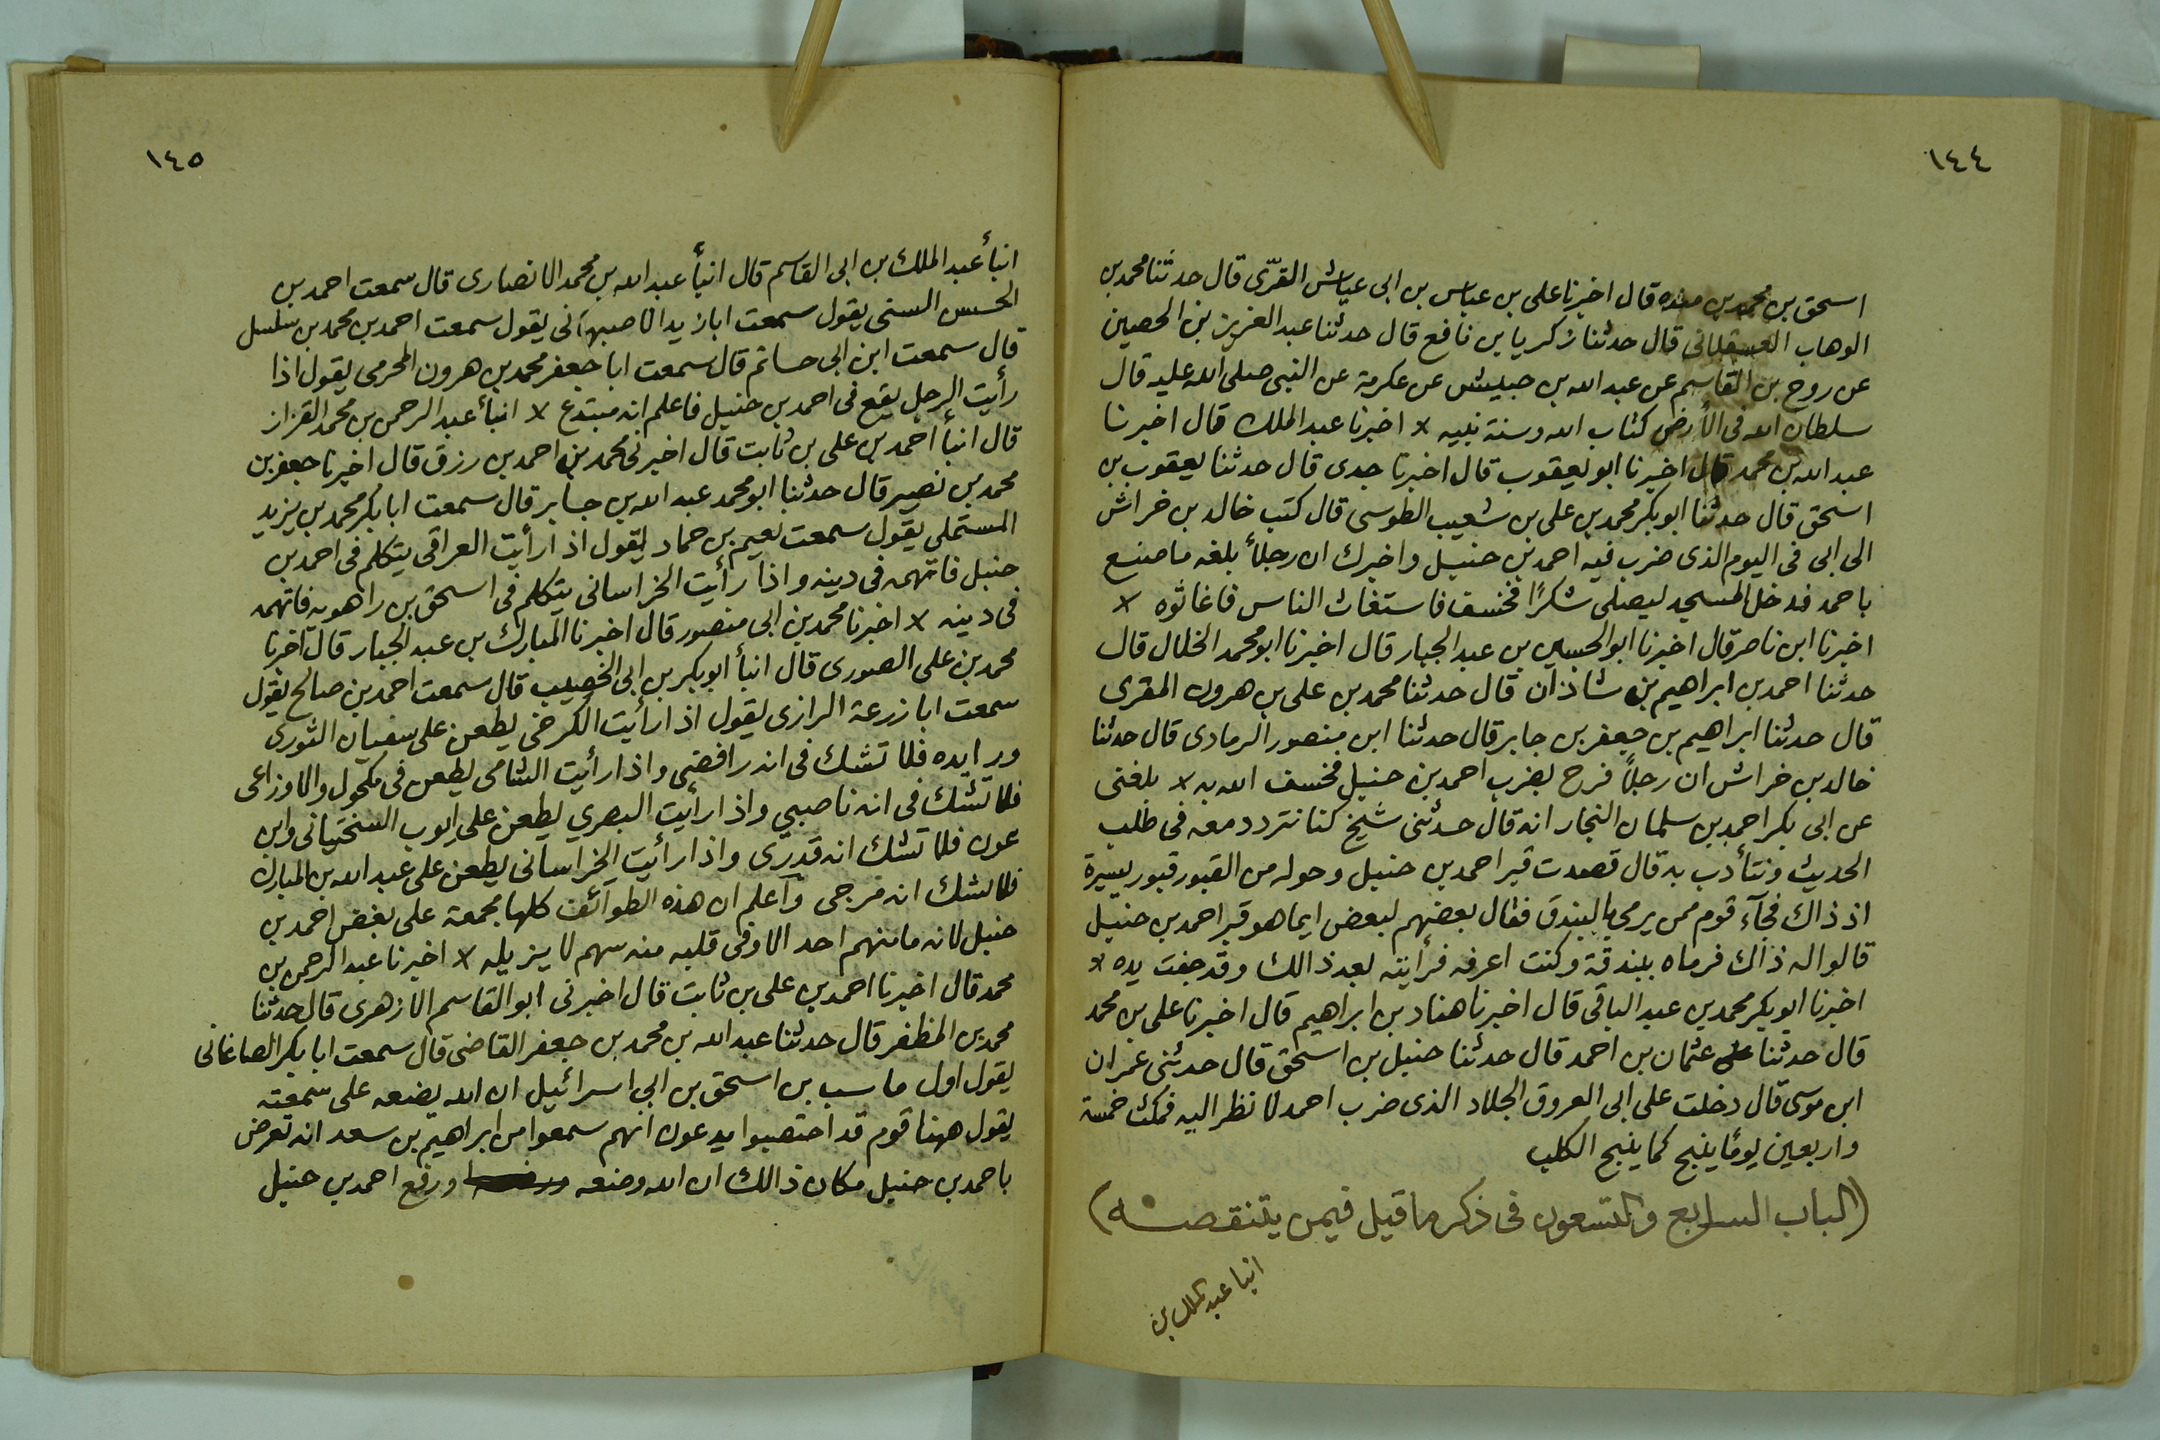 ١٤٤
اسحق بن محمد بن منده قال اخبرنا على بن عباس بن ابى عياش القزّى قال حدثنا محمد بن
الوهاب العسقلانى قال حدثنا زكريا بن نافع قال حدثنا عبد العزيز بن الحصين
عن روح بن القاسم عن عبد الله بن حبيش عن عكرمة عن النبى صلى الله عليه قال
سلطان الله فى الأرض كتاب الله وسنة نبيه × اخبرنا عبد الملك قال اخبرنا
عبد الله بن محمد قال اخبرنا ابو يعقوب قال اخبرنا جدى قال حدثنا يعقوب بن
اسحق قال حدثنا ابو بكر محمد بن على بن شعيب الطوسى قال كتب خالد بن خراش
الى ابى فى اليوم الذى ضرب فيه احمد بن حنبل واخبرك ان رجلاً بلغه ما صنع
باحمد فدخل المسجد ليصلى شكرًا فخسف فاستغاث الناس فاغاثوه ×
اخبرنا ابن ناصر قال اخبرنا ابو الحسين بن عبد الجبار قال اخبرنا ابو محمد الخلال قال
حدثنا احمد بن ابراهيم بن شاذان قال حدثنا محمد بن على بن هرون المقرى
قال حدثنا ابراهيم بن جعفر بن جابر قال حدثنا ابن منصور الرمادى قال حدثنا
خالد بن خراش ان رجلاً فرح بضرب احمد بن حنبل فخسف الله به × بلغنى
عن ابى بكر احمد بن سلمان النجار انه قال حدثنى شيخ كنا نتردد معه فى طلب
الحديث ونتأدب به قال قصدت قبر احمد بن حنبل وحوله من القبور قبور يسيرة
اذ ذاك فجآء قوم ممن يرمى بالبندق فقال بعضهم لبعض ايما هو قبر احمد بن حنبل
قالوا له ذاك فرماه ببندقة وكنت اعرفه فرأيته بعد ذالك وقد جفت يده ×
اخبرنا ابو بكر محمد بن عبد الباقى قال اخبرنا هناد بن ابراهيم قال اخبرنا على بن محمد
قال حدثنا عثمان بن احمد قال حدثنا حنبل بن اسحق قال حدثنى عمران
ابن موسى قال دخلت على ابى العروق الجلاد الذى ضرب احمد لانظر اليه فمكث خمسة
واربعين يومًا ينبح كما ينبح الكلب
(الباب السابع والتسعون فى ذكر ما قيل فيمن يتنقصه)
انبا عبد الملك بن
١٤٥
انبأ عبد الملك بن ابى القاسم قال انبأ عبد الله بن محمد الانصارى قال سمعت احمد بن
الحسن السنى يقول سمعت ابا زيد الاصبهآنى يقول سمعت احمد بن محمد بن سلسل
قال سمعت ابن ابى حاتم قال سمعت ابا جعفر محمد بن هرون المخرمى يقول اذا
رأيت الرجل يقع فى احمد بن حنبل فاعلم انه مبتدع × انبأ عبد الرحمن بن محمد القزاز
قال انبأ احمد بن على بن ثابت قال اخبرنى محمد بن احمد بن رزق قال اخبرنا جعفر بن
محمد بن نصير قال حدثنا ابو محمد عبد الله بن جابر قال سمعت ابا بكر محمد بن يزيد
المستملى يقول سمعت نعيم بن حماد يقول اذا رأيت العراقى يتكلم فى احمد بن
حنبل فاتهمه فى دينه واذا رأيت الخراسانى يتكلم فى اسحق بن راهويه فاتهمه
فى دينه × اخبرنا محمد بن ابى منصور قال اخبرنا المبارك بن عبد الجبار قال اخبرنا
محمد بن على الصورى قال انبأ ابو بكر بن ابى الخصيب قال سمعت احمد بن صالح يقول
سمعت ابا زرعة الرازى يقول اذا رأيت الكرخى يطعن على سفيان الثورى
وزايده فلا تشك فى انه رافضى واذا رأيت الشامى يطعن فى مكحول والاوزاعى
فلا تشك فى انه ناصبي واذا رأيت البصري يطعن على ايوب السختيانى وابن
عون فلا تشك انه قدرى واذا رأيت الخراسانى يطعن على عبد الله بن المبارك
فلا تشك انه مرجى وآعلم ان هذه الطوآئف كلها مجمعة على بغض احمد بن
حنبل لانه ما منهم احد الا وفى قلبه منه سهم لا يزيله × اخبرنا عبد الرحمن بن
محمد قال اخبرنا احمد بن على بن ثابت قال اخبرنى ابو القاسم الازهرى قال حدثنا
محمد بن المظفر قال حدثنا عبد الله بن محمد بن جعفر القاضى قال سمعت ابا بكر الصاغانى
يقول اول ما سب بن اسحق بن ابى اسرائيل ان الله يضعه على سمعته
يقول ههنا قوم قد اختصبوا يدعون انهم سمعوا من ابراهيم بن سعد انه تعرض
باحمد بن حنبل مكان ذالك ان الله وضعه ورفع احمد بن حنبل